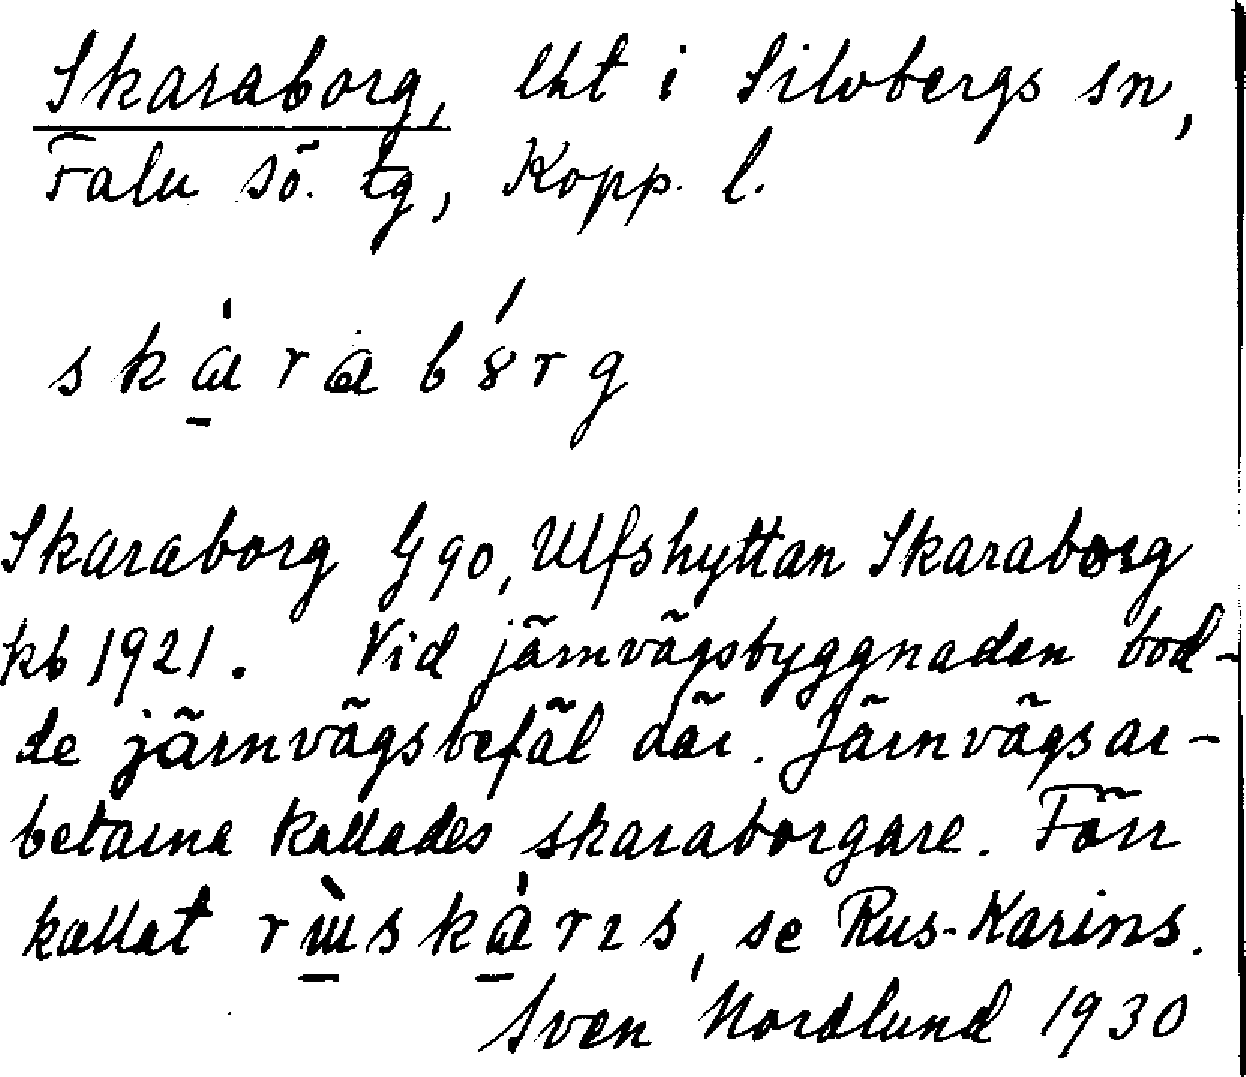 Skaraborg, lht i Silvbergs sn,
Falu sö. tg, Kopp. l.
skàrabórg
Skaraborg G 90, Ulfshyttan Skaraborg
kb 1921. Vid järnvägsbyggnaden bod-
de järnvägsbefäl där. Järnvägsar-
betarna kallades skaraborgare. Förr
kallat se Rus-Karins.
Sven Nordlund 1930